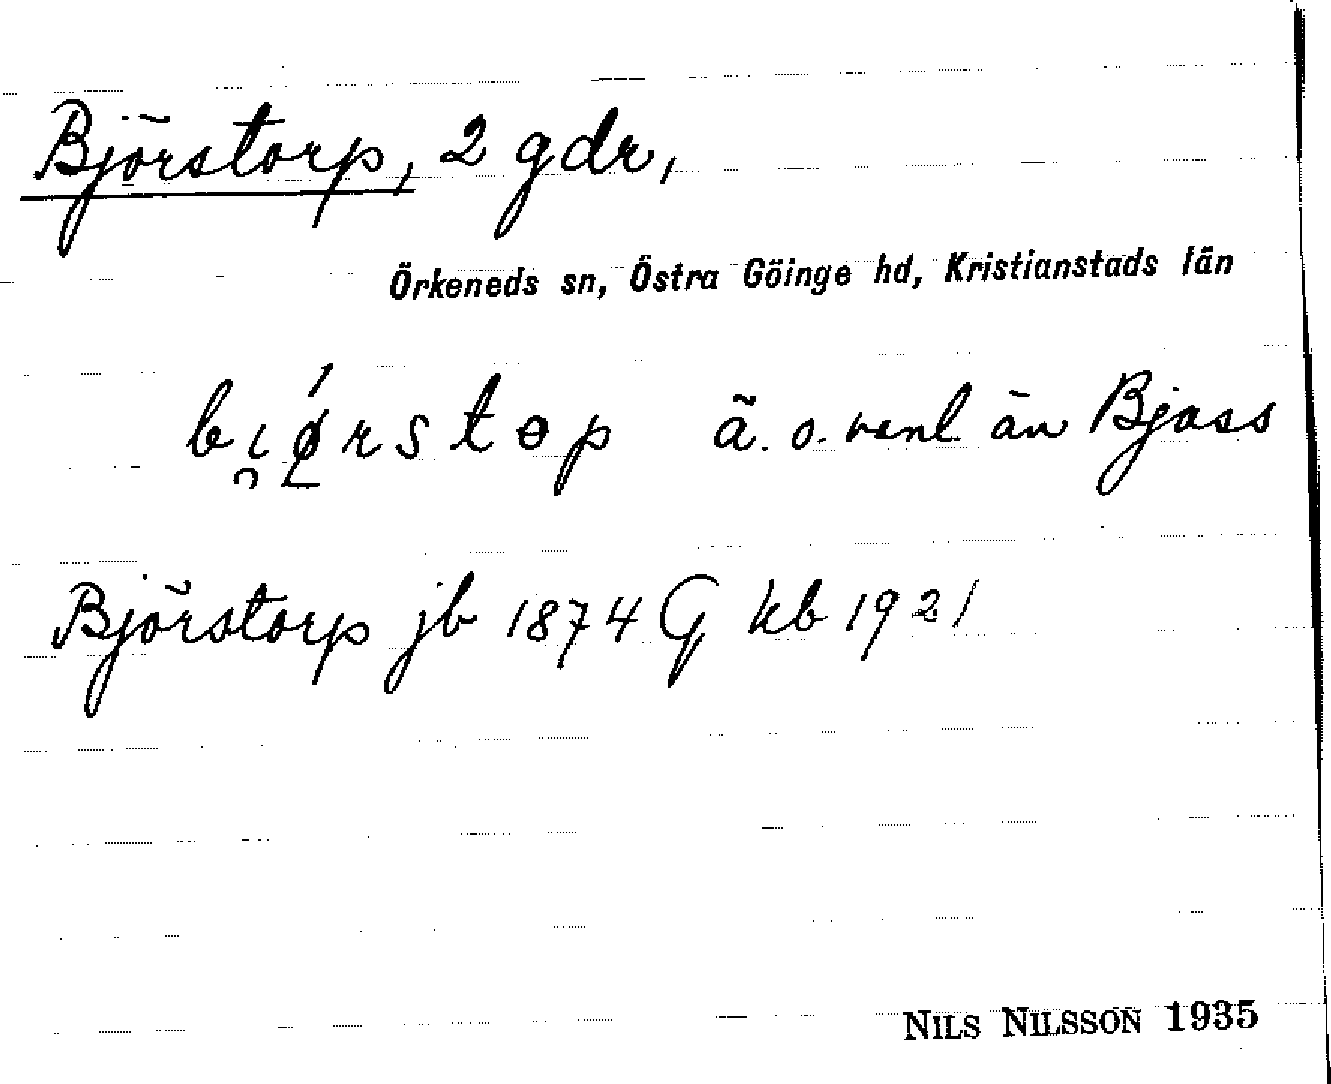 Björstorp, 2 gdr,
Örkeneds sn, Östra Göinge hd, Kristianstads län
bi̯ǿrstɵp ä. o. vanl. än Bjass
Björstorp jb 1874 G kb 1921
NILS NILSSON 1935